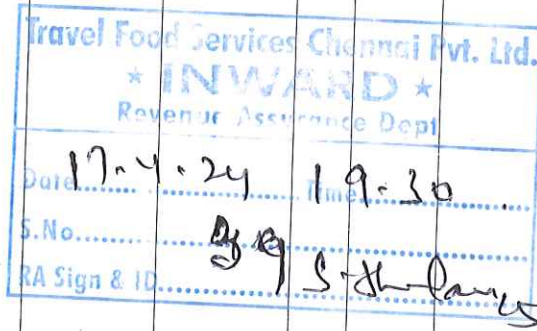 Travel Food Services Chennai Pvt. Ltd.
* INWARD *
Revenue Assurance Dept
Date 17.4.24 Time 19.30
S.No.
RA Sign & ID